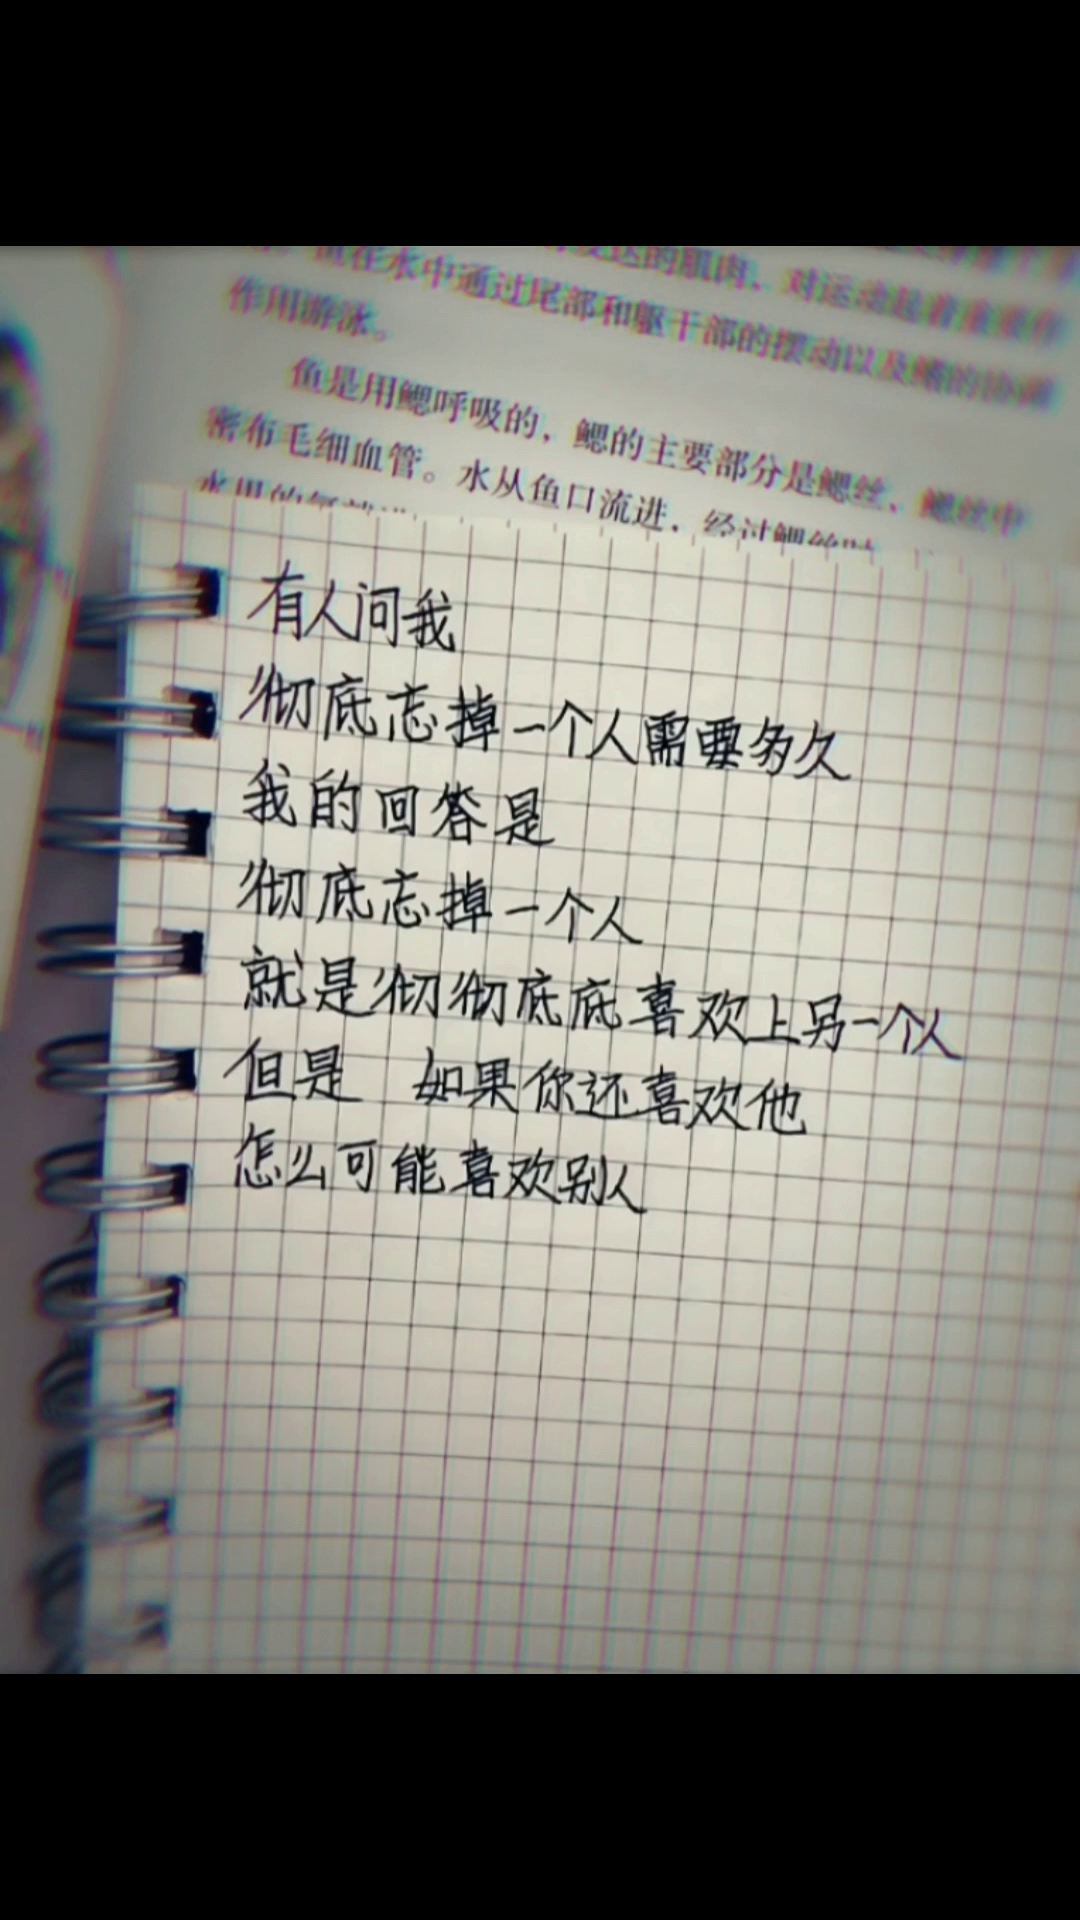 发达的肌肉，对运动起着重要作
在水中通过尾部和躯干部的摆动以及鳍的协调
作用游泳。
鱼是用鳃呼吸的，鳃的主要部分是鳃丝，鳃丝中
密布毛细血管。水从鱼口流进，经过鳃丝时
有人问我
彻底忘掉一个人需要多久
我的回答是
彻底忘掉一个人
就是彻彻底底喜欢上另一个人
但是 如果你还喜欢他
怎么可能喜欢别人